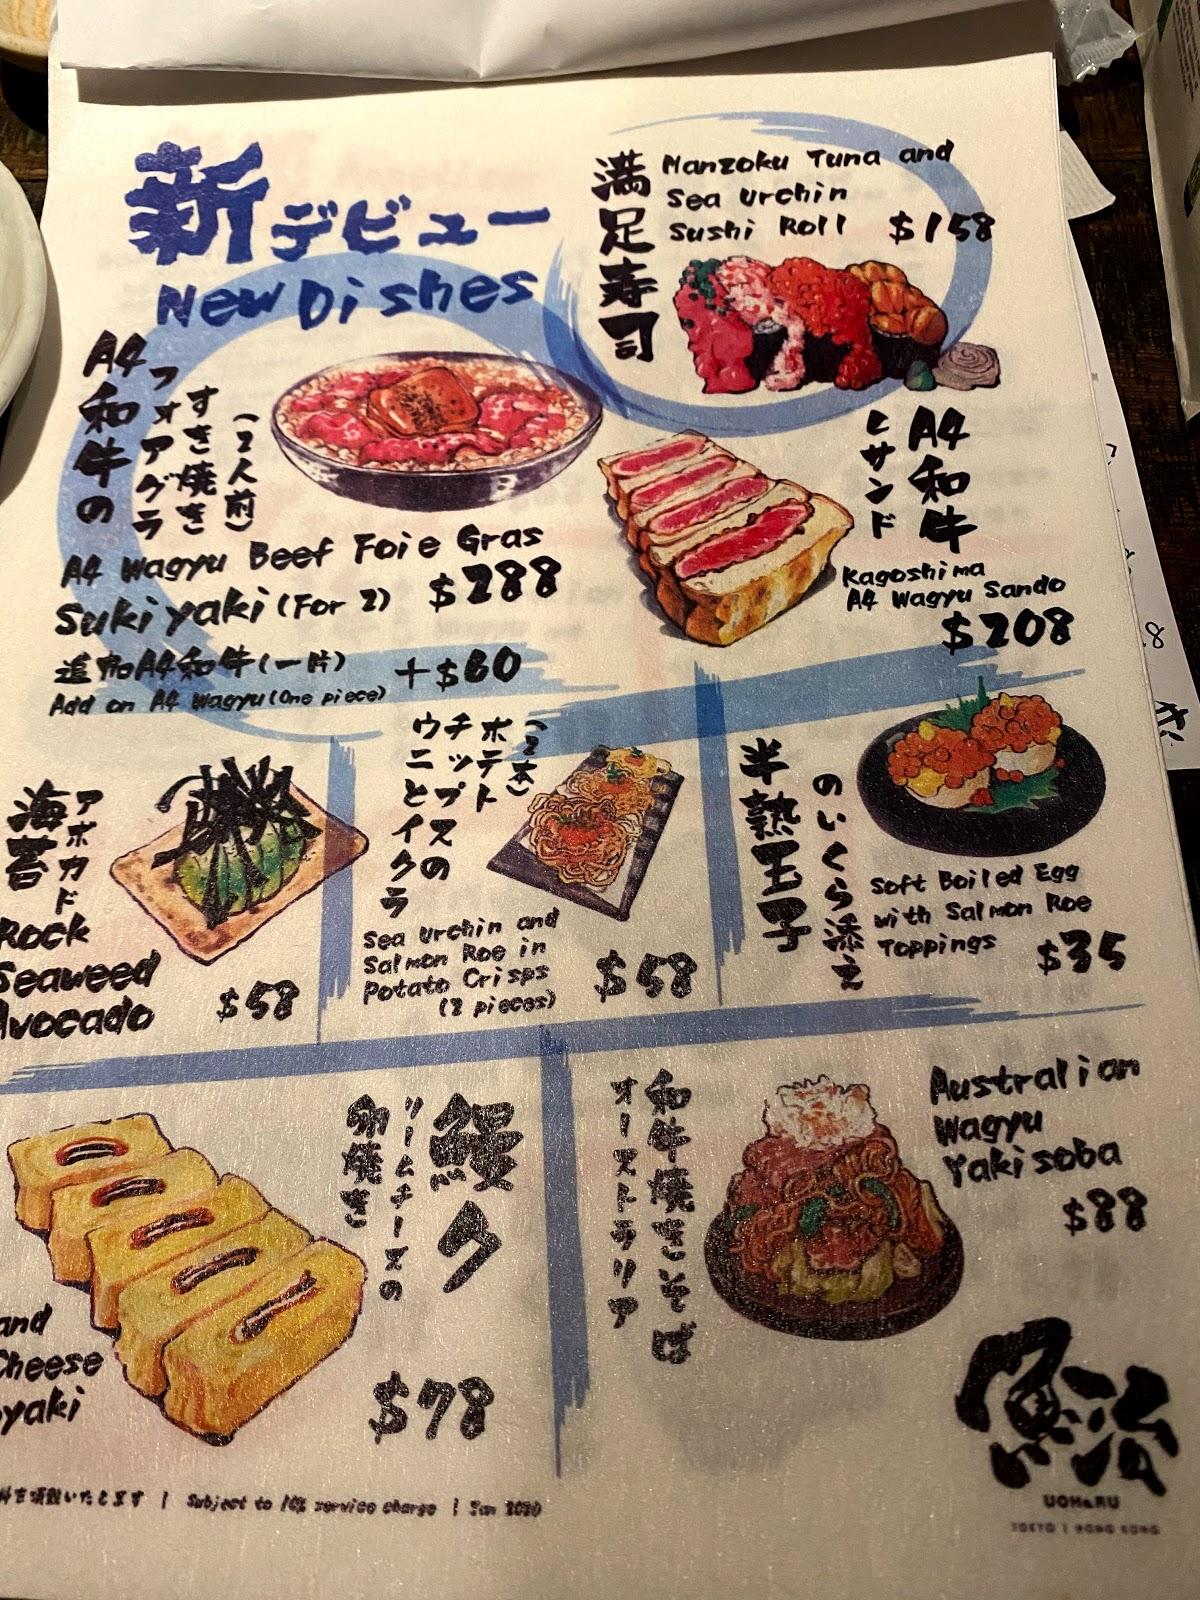 新デビュー
New Dishes
満足寿司
Manzoku Tuna and
Sea Urchin
Sushi Roll $158
A4和牛の
フォアグラ
すき焼き
(2人前)
A4 Wagyu Beef Foie Gras
Sukiyaki (For 2) $288
追加A4和牛(一片) +$60
Add on A4 Wagyu (One piece)
A4和牛
ヒサンド
Kagoshima
A4 Wagyu Sando
$208
海苔
アボカド
Rock
Seaweed
Avocado $58
(2本)
ポテト
チップスの
ウニとイクラ
Sea Urchin and
Salmon Roe in
Potato Crisps
(2 pieces) $58
半熟玉子
のいくら添え
Soft Boiled Egg
with Salmon Roe
Toppings $35
鰻ク
リームチーズの
卵焼き
and
Cheese
yaki
$78
和牛焼きそば
オーストラリア
Australian
Wagyu
Yakisoba
$88
頂戴いたします | Subject to 10% service charge | Jan 2020
UOHARU
TOKYO | HONG KONG